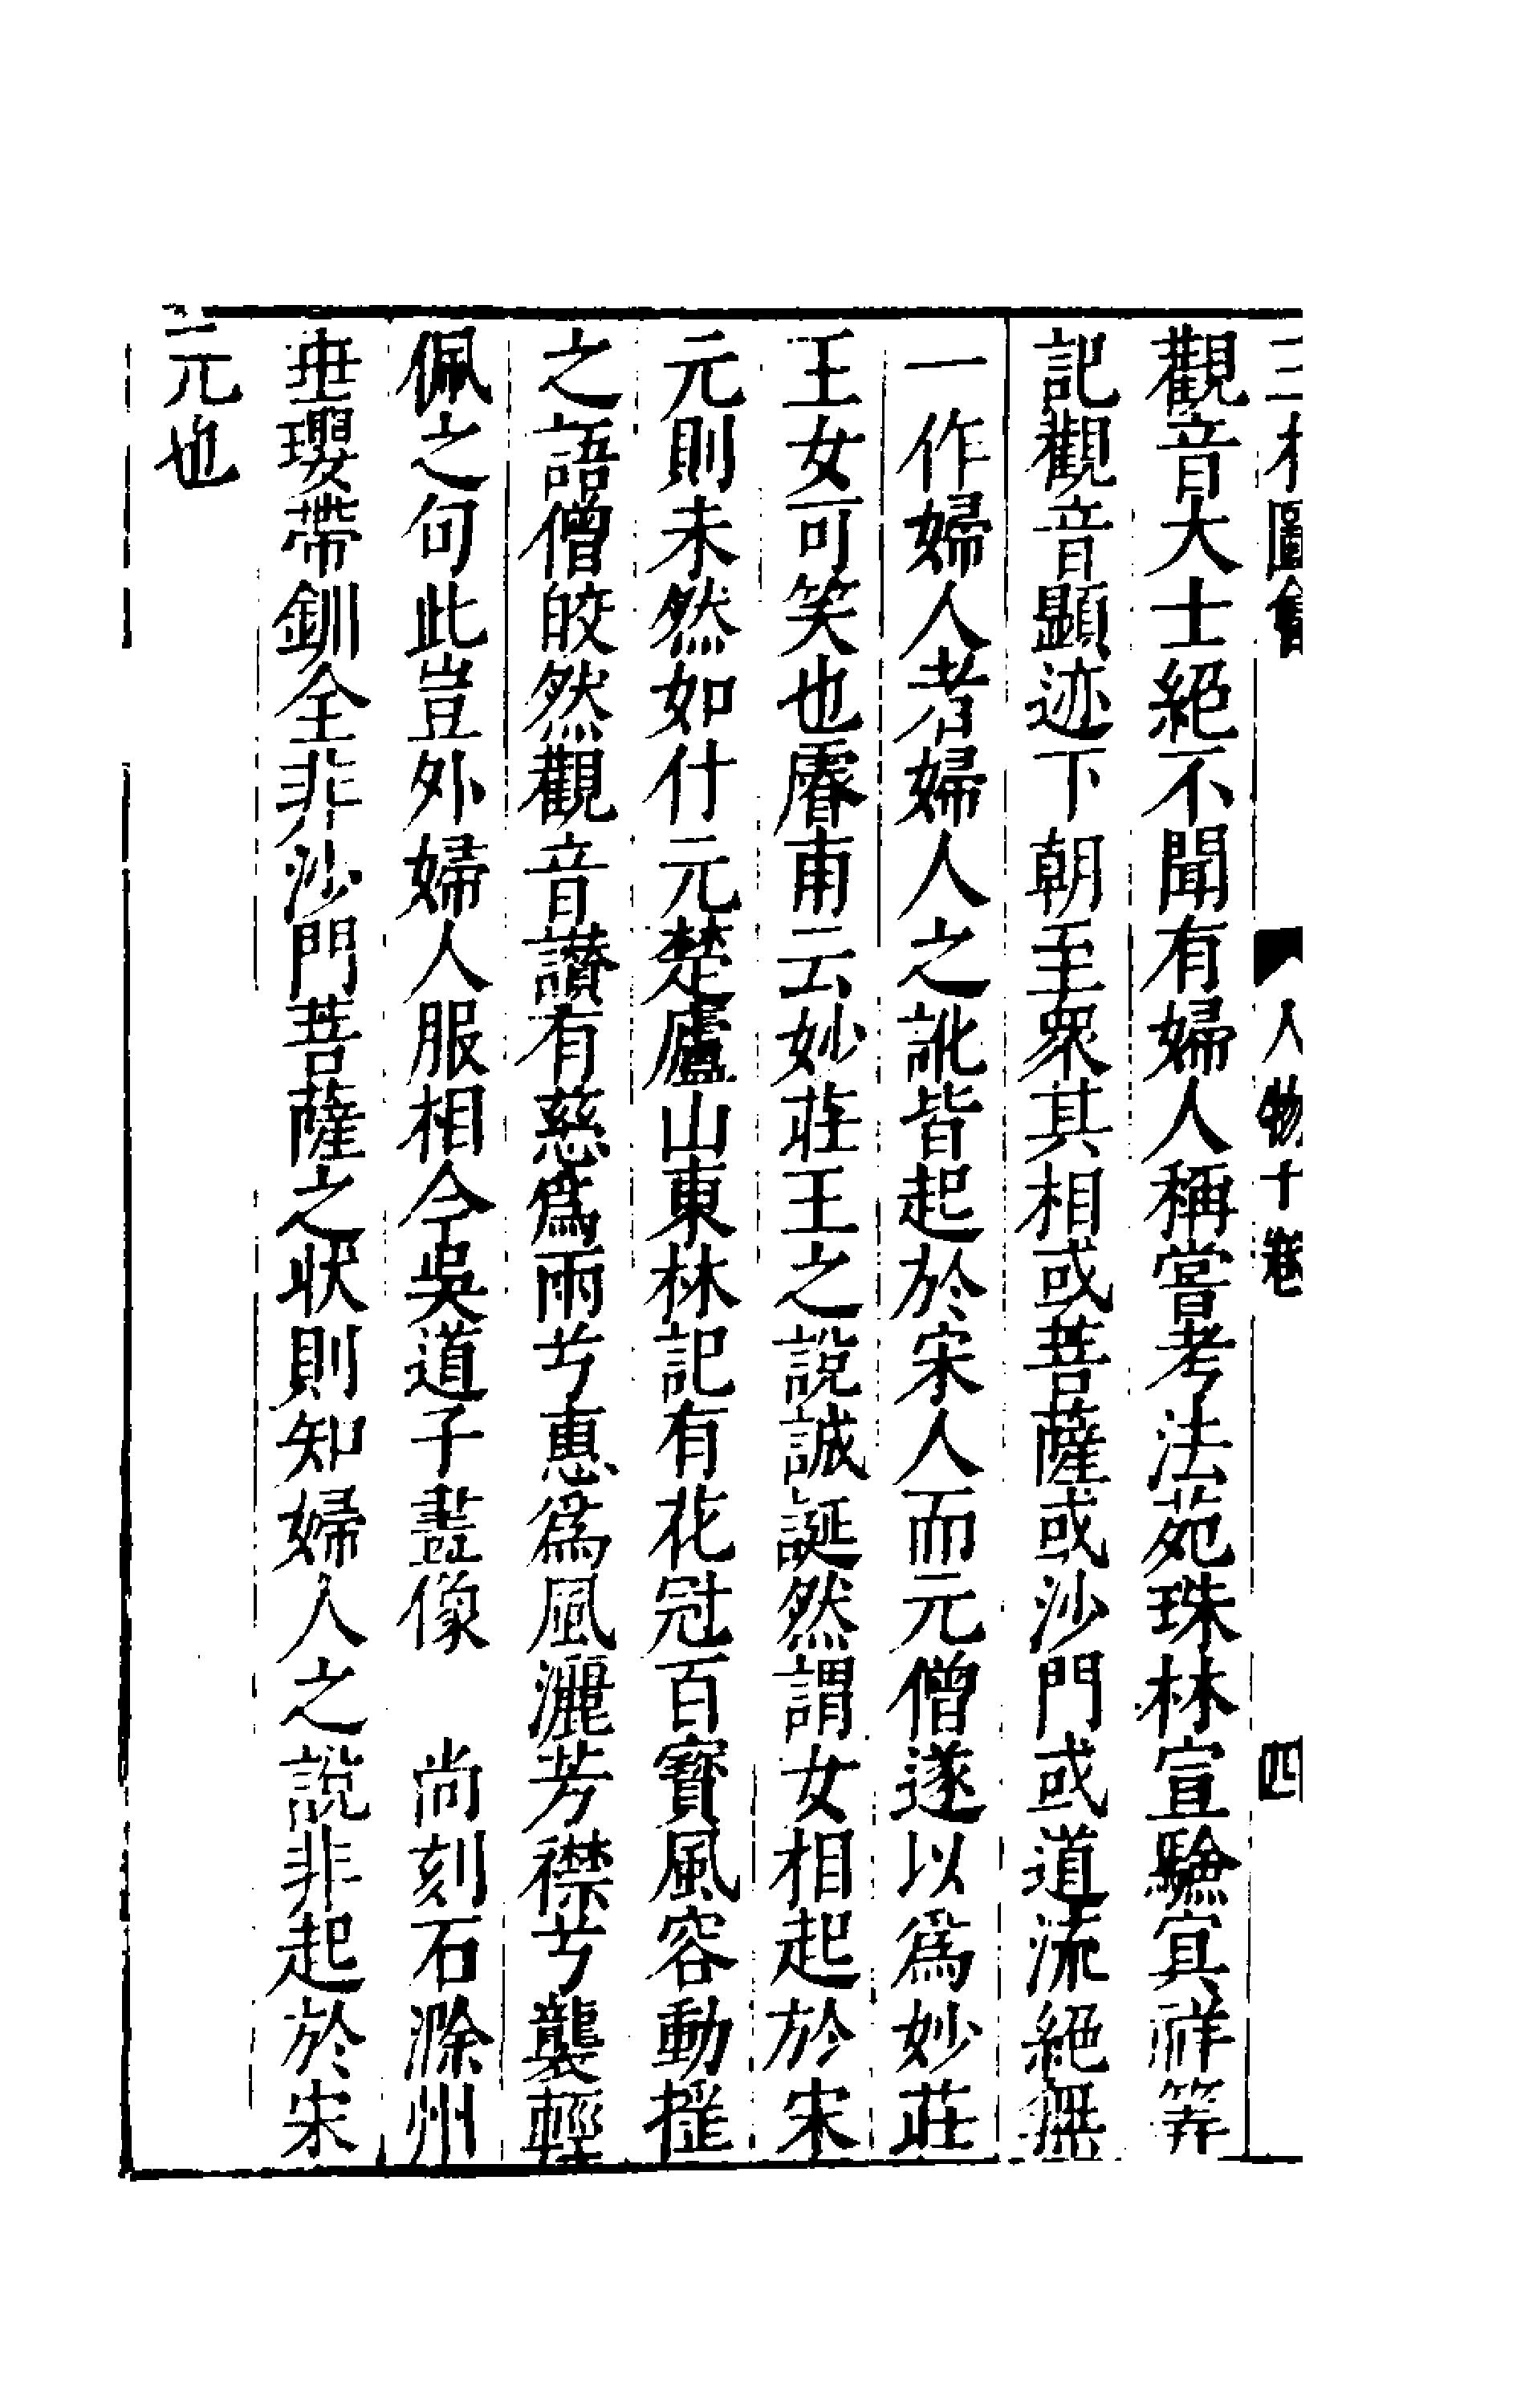 三才圖會 人物十卷 四
觀音大士絕不聞有婦人稱嘗考法苑珠林宣驗冥祥等
記觀音顯迹下朝至衆其相或菩薩或沙門或道流絕無
一作婦人者婦人之訛皆起於宋人而元僧遂以爲妙莊
王女可笑也睿甫云妙莊王之說誠誕然謂女相起於宋
元則未然如什元楚廬山東林記有花冠百寳風容動搖
之語僧皎然觀音讃有慈爲雨兮惠爲風灑芳襟兮襲輕
佩之句此豈外婦人服相今吳道子畫像 尚刻石滁州
垂瓔帶釧全非沙門菩薩之狀則知婦人之說非起於宋
元也